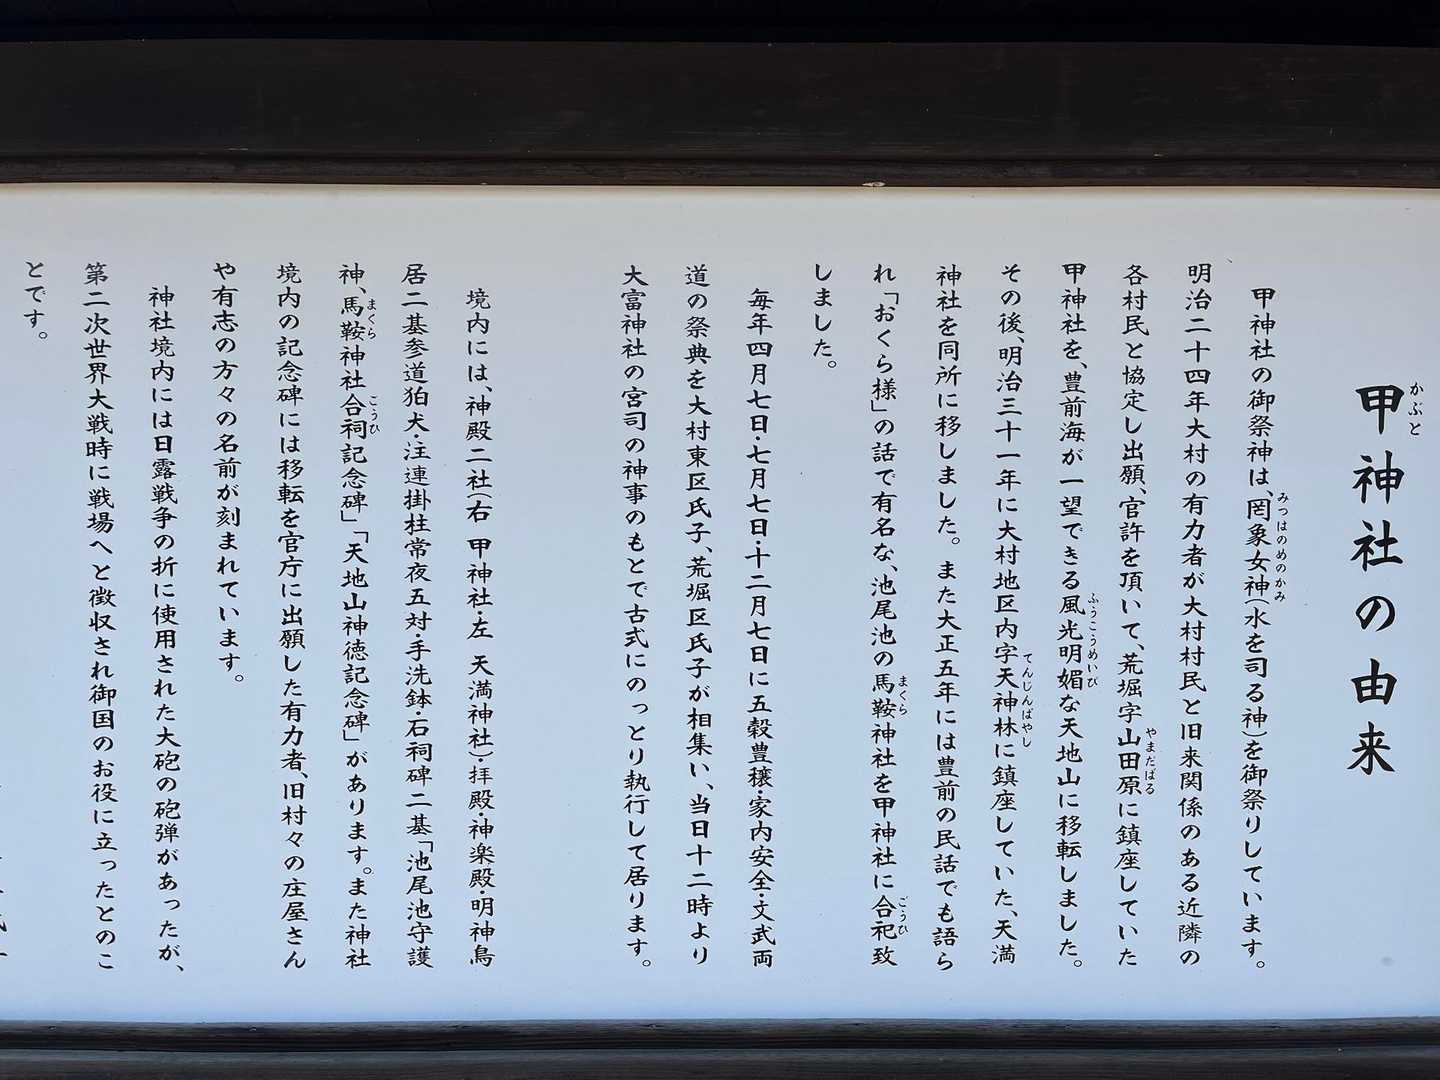 甲神社の由来
かぶと
甲神社の御祭神は、罔象女神(水を司る神)を御祭りしています。
みつはのめのかみ
明治二十四年大村の有力者が大村村民と旧来関係のある近隣の
各村民と協定し出願、官許を頂いて、荒堀字山田原に鎮座していた
やまだばる
甲神社を、豊前海が一望できる風光明媚な天地山に移転しました。
ふうこうめいび
その後、明治三十一年に大村地区内字天神林に鎮座していた、天満
てんじんばやし
神社を同所に移しました。また大正五年には豊前の民話でも語ら
れ「おくら様」の話で有名な、池尾池の馬鞍神社を甲神社に合祀致
まくら
ごうひ
しました。
毎年四月七日・七月七日・十二月七日に五穀豊穣・家内安全・文武両
道の祭典を大村東区氏子、荒堀区氏子が相集い、当日十二時より
大富神社の宮司の神事のもとで古式にのっとり執行して居ります。
境内には、神殿二社(右 甲神社・左 天満神社)・拝殿・神楽殿・明神鳥
居二基参道狛犬・注連掛柱常夜五対・手洗鉢・石祠碑二基「池尾池守護
神、馬鞍神社合祠記念碑」「天地山神徳記念碑」があります。また神社
まくら
こうひ
境内の記念碑には移転を官庁に出願した有力者、旧村々の庄屋さん
や有志の方々の名前が刻まれています。
神社境内には日露戦争の折に使用された大砲の砲弾があったが、
第二次世界大戦時に戦場へと徴収され御国のお役に立ったとのこ
とです。